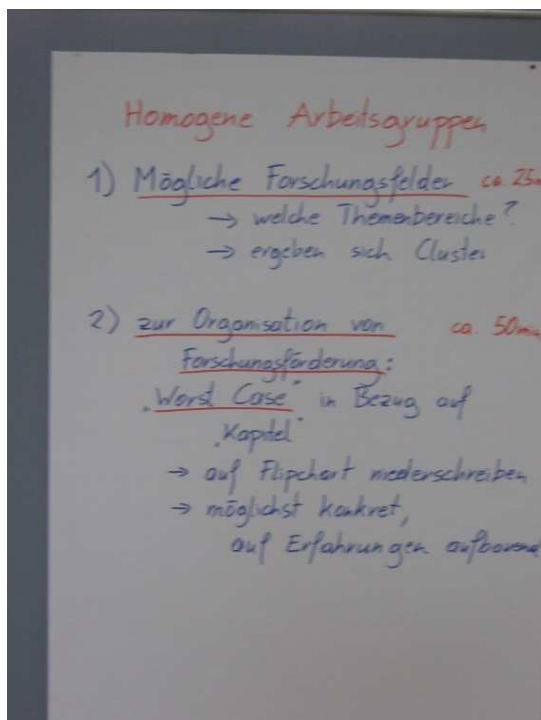 Homogene Arbeitsgruppen
1) Mögliche Forschungsfelder ca. 25m
→ welche Themenbereiche?
→ ergeben sich Cluster
2) zur Organisation von ca. 50min
Forschungsförderung:
"Worst Case" in Bezug auf
"Kapitel"
→ auf Flipchart niederschreiben
→ möglichst konkret,
auf Erfahrungen aufbauend